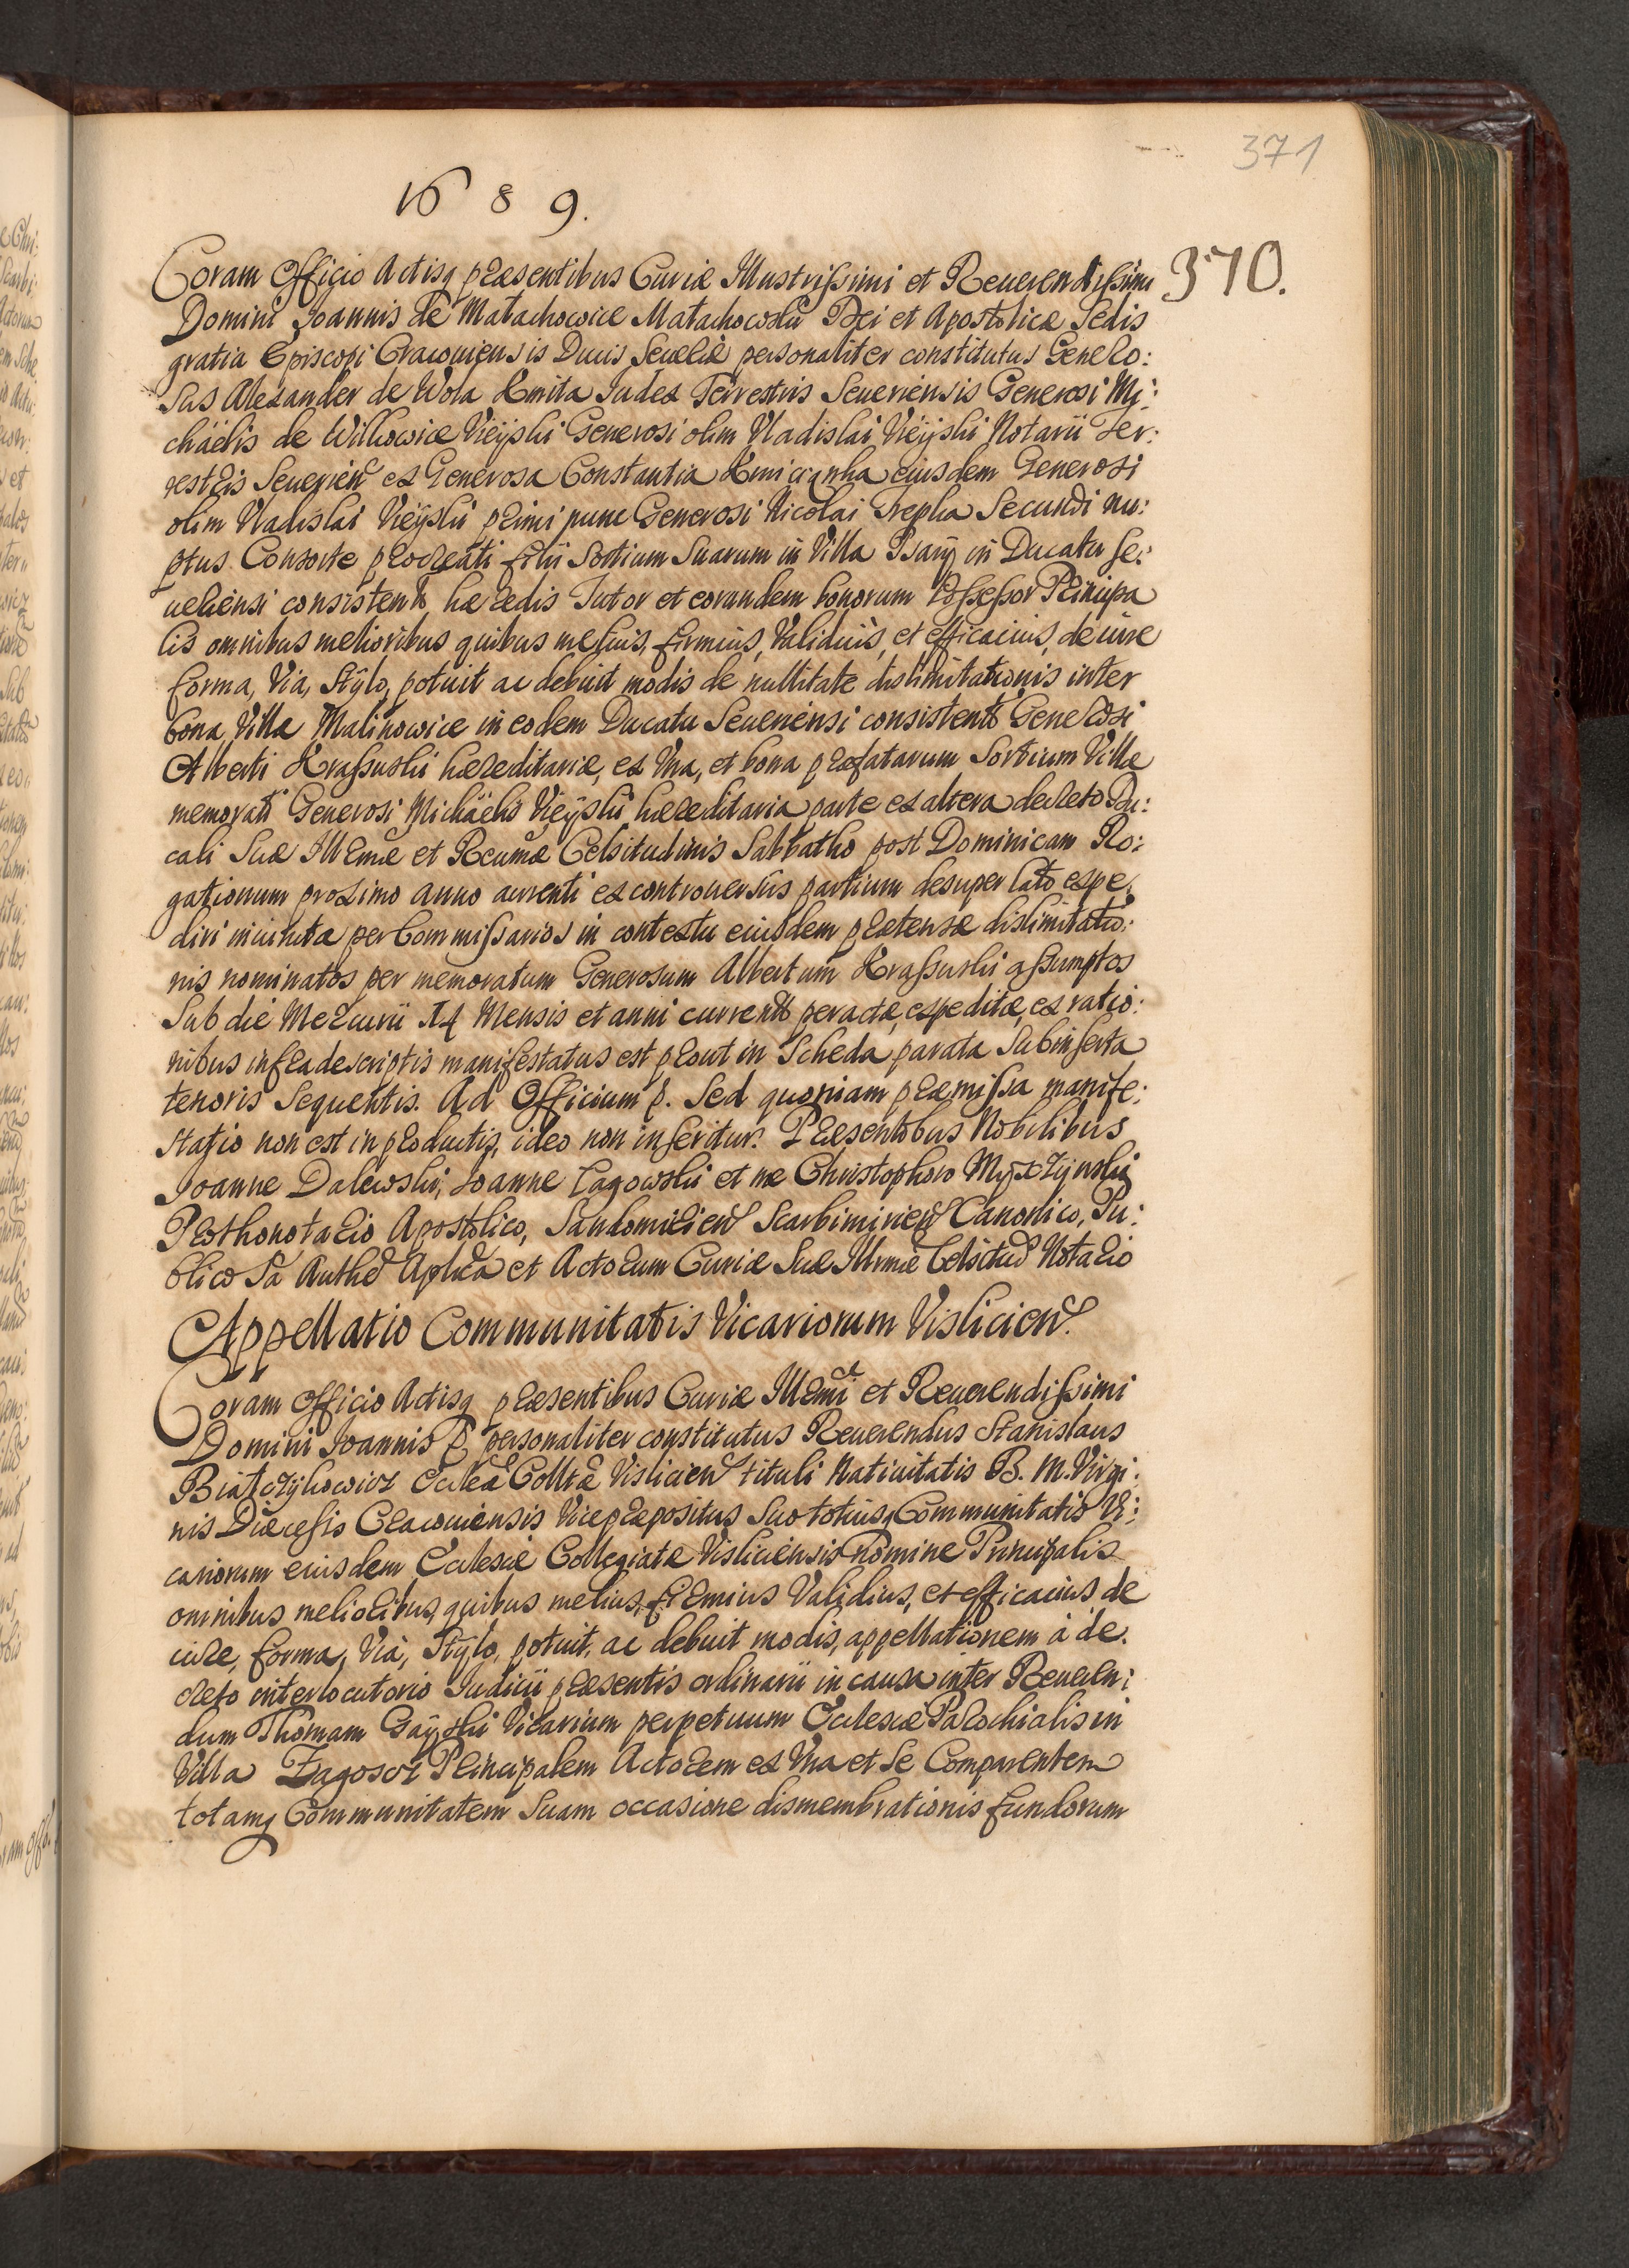 371
1689.
370.
Coram Officio Actisq præsentibus Curiæ Illustrissimi et Reuerendissimi
Domini Joannis de Małachowice Małachowski Dei et Apostolicæ Sedis
gratia Episcopi Cracouiensis Ducis Seueriæ personaliter constitutus Genero:
sus Alexander de Wola Kmita Judex Terrestris Seueriensis Generosi Mi:
chäelis de Witkowice Nieÿski Generosi olim Vladislai Nieÿski Notarii Ter:
restris Seuerien ex Generosa Constantia Kmicianka eiusdem Generosi
olim Vladislai Nieÿski primi nunc Generosi Nicolai Trepka Secundi nu:
ptus Consorte procreati filii Sortium Suarum in Villa Psarÿ in Ducatu Se:
ueriensi consisten hæredis Tutor et eorundem bonorum Possessor Principa
lis omnibus melioribus quibus melius, firmius, Validius, et efficacius, de iure
forma, Via, Stÿlo, potuit ac debuit modis de nullitate dislimitationis inter
bona Villæ Malinowice in eodem Ducatu Seueriensi consisten Generosi
Alberti Krassuski hæreditariæ, ex Vna, et bona præfatarum Sortium Villæ
memorati Generosi Michäelis Nieÿski hæreditaria parte ex altera decreto Du:
cali Suæ Illrmæ et Reumæ Celsitudinis Sabbatho post Dominicam Ro:
gationum proximo anno currenti ex controuersiis partium desuper lato expe:
diri iniuncta per Commissarios in contextu eiusdem prætensæ dislimitatio:
nis nominatos per memoratum Generosum Albertum Krassuski assumptos
Sub die Mercurii 14 Mensis et anni curren peractæ, expeditæ, ex ratio:
nibus infradescriptis manifestatus est prout in Scheda parata Subinserta
tenoris Sequentis. Ad Officium p. Sed quoniam præmissa manife:
statio non est in productis, ideo non inseritur. Præsentibus Nobilibus
Joanne Dalewski, Joanne Łagowski et me Christophoro
Prothonotario Apostolico, Sandomirien Scarbimirien Canonico, Pu:
blico Sa Authe Aplica et Actorum Curiæ Suæ Illrmæ Celsitud Notario
Appellatio Communitatis Vicariorum Vislicien.
Coram officio Actisq præsentibus Curiæ Illrmi et Reuerendissimi
Domini Joannis p personaliter constitutus Reuerendus Stanislaus
Białczÿkowicz Ecclea Collta Vislicien tituli Natiuitatis B. M. Virgi:
nis Diæcesis Cracouiensis Vicepræpositus Suo totiusq Communitatis Vi:
cariorum eiusdem Ecclesiæ Collegiatæ Visliciensis Nomine Principalis
omnibus melioribus, quibus melius, firmius Validius, et efficacius, de
iure, forma, Via, Stÿlo, potuit, ac debuit modis, appellationem à de:
creto interlocutorio Iudicii præsentis ordinarii in causa inter Reueren:
dum Thomam Gaÿski Vicarium perpetuum Ecclesiæ Parochialis in
Villa Zagoscz Principalem Actorem ex Vna et Se Comparentem
totamq Communitatem Suam occasione dismembrationis fundorum